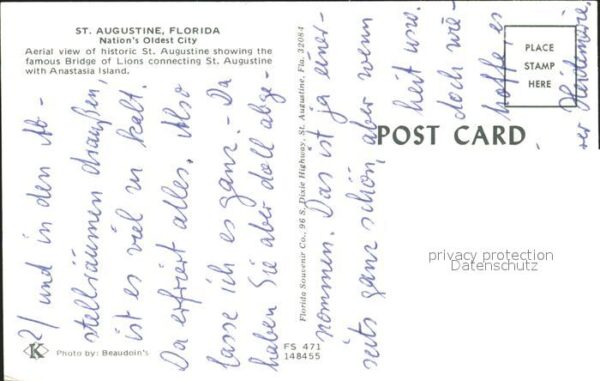 ST. AUGUSTINE, FLORIDA
Nation's Oldest City
Aerial view of historic St. Augustine showing the
famous Bridge of Lions connecting St. Augustine
with Anastasia Island.
2/ und in den Ab-
stellräumen draußen,
ist es viel zu kalt.
Da erfriert alles. Also
lasse ich es ganz. - Da
haben Sie aber doll abge-
nommen. Das ist ja einer-
seits ganz schön, aber wenn
heit usw.
doch wie-
hoffe, es
rer
Photo by: Beaudoin's
FS 471
148455
Florida Souvenir Co., 96 S. Dixie Highway, St. Augustine, Fla. 32084
POST CARD
PLACE
STAMP
HERE
privacy protection
Datenschutz
K